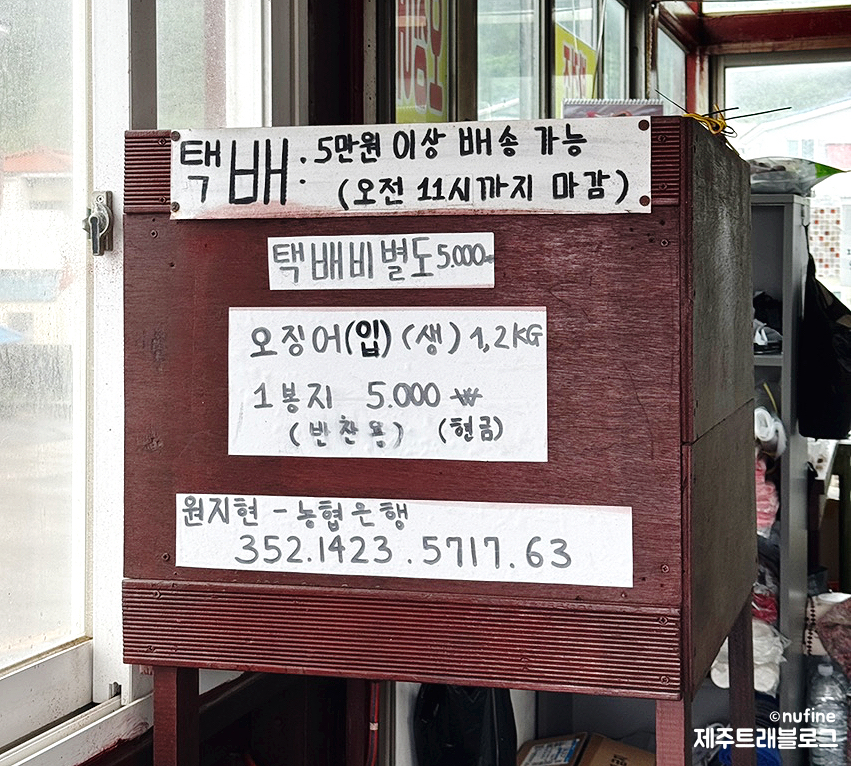 택배: 5만원 이상 배송 가능
(오전 11시까지 마감)
택배비별도 5.000
오징어(입) (생) 1,2KG
1봉지 5.000 ₩
(반찬용) (현금)
원지현 - 농협은행
352.1423.5717.63
©nufine
제주트래블로그